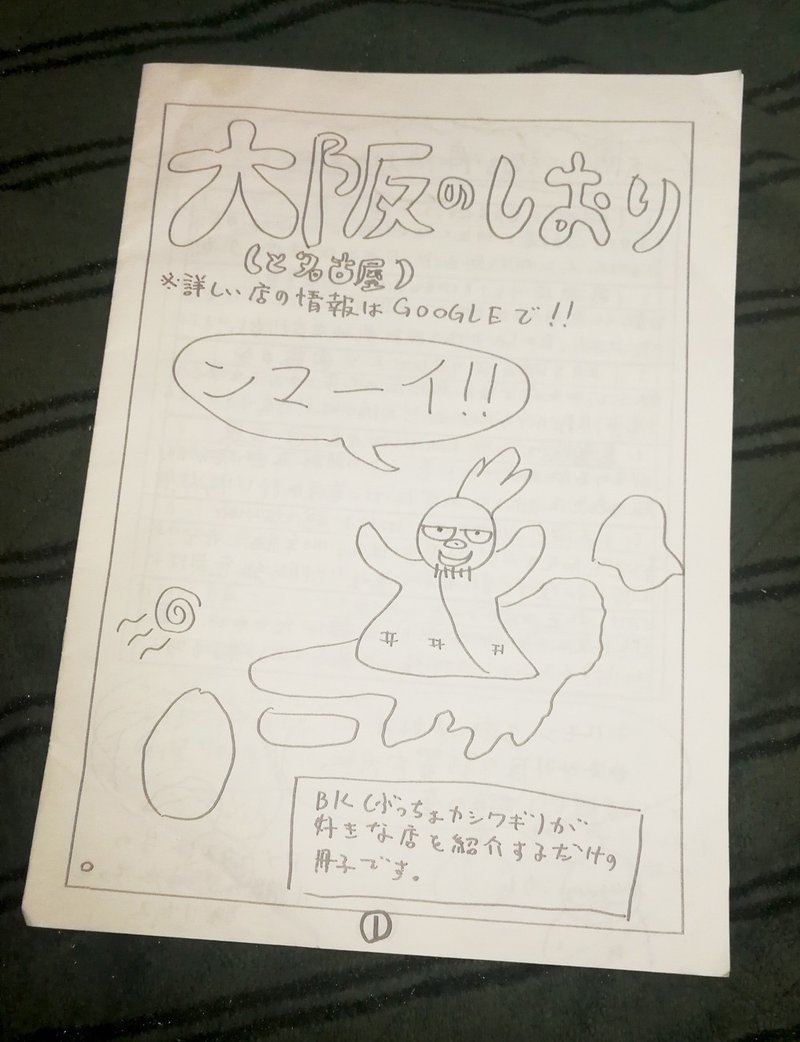 大阪のしおり
(と名古屋)
※詳しい店の情報はGOOGLEで!!
ンマーイ!!
BK(ぶっちょカシワギ)が
好きな店を紹介するだけの
冊子です。
①